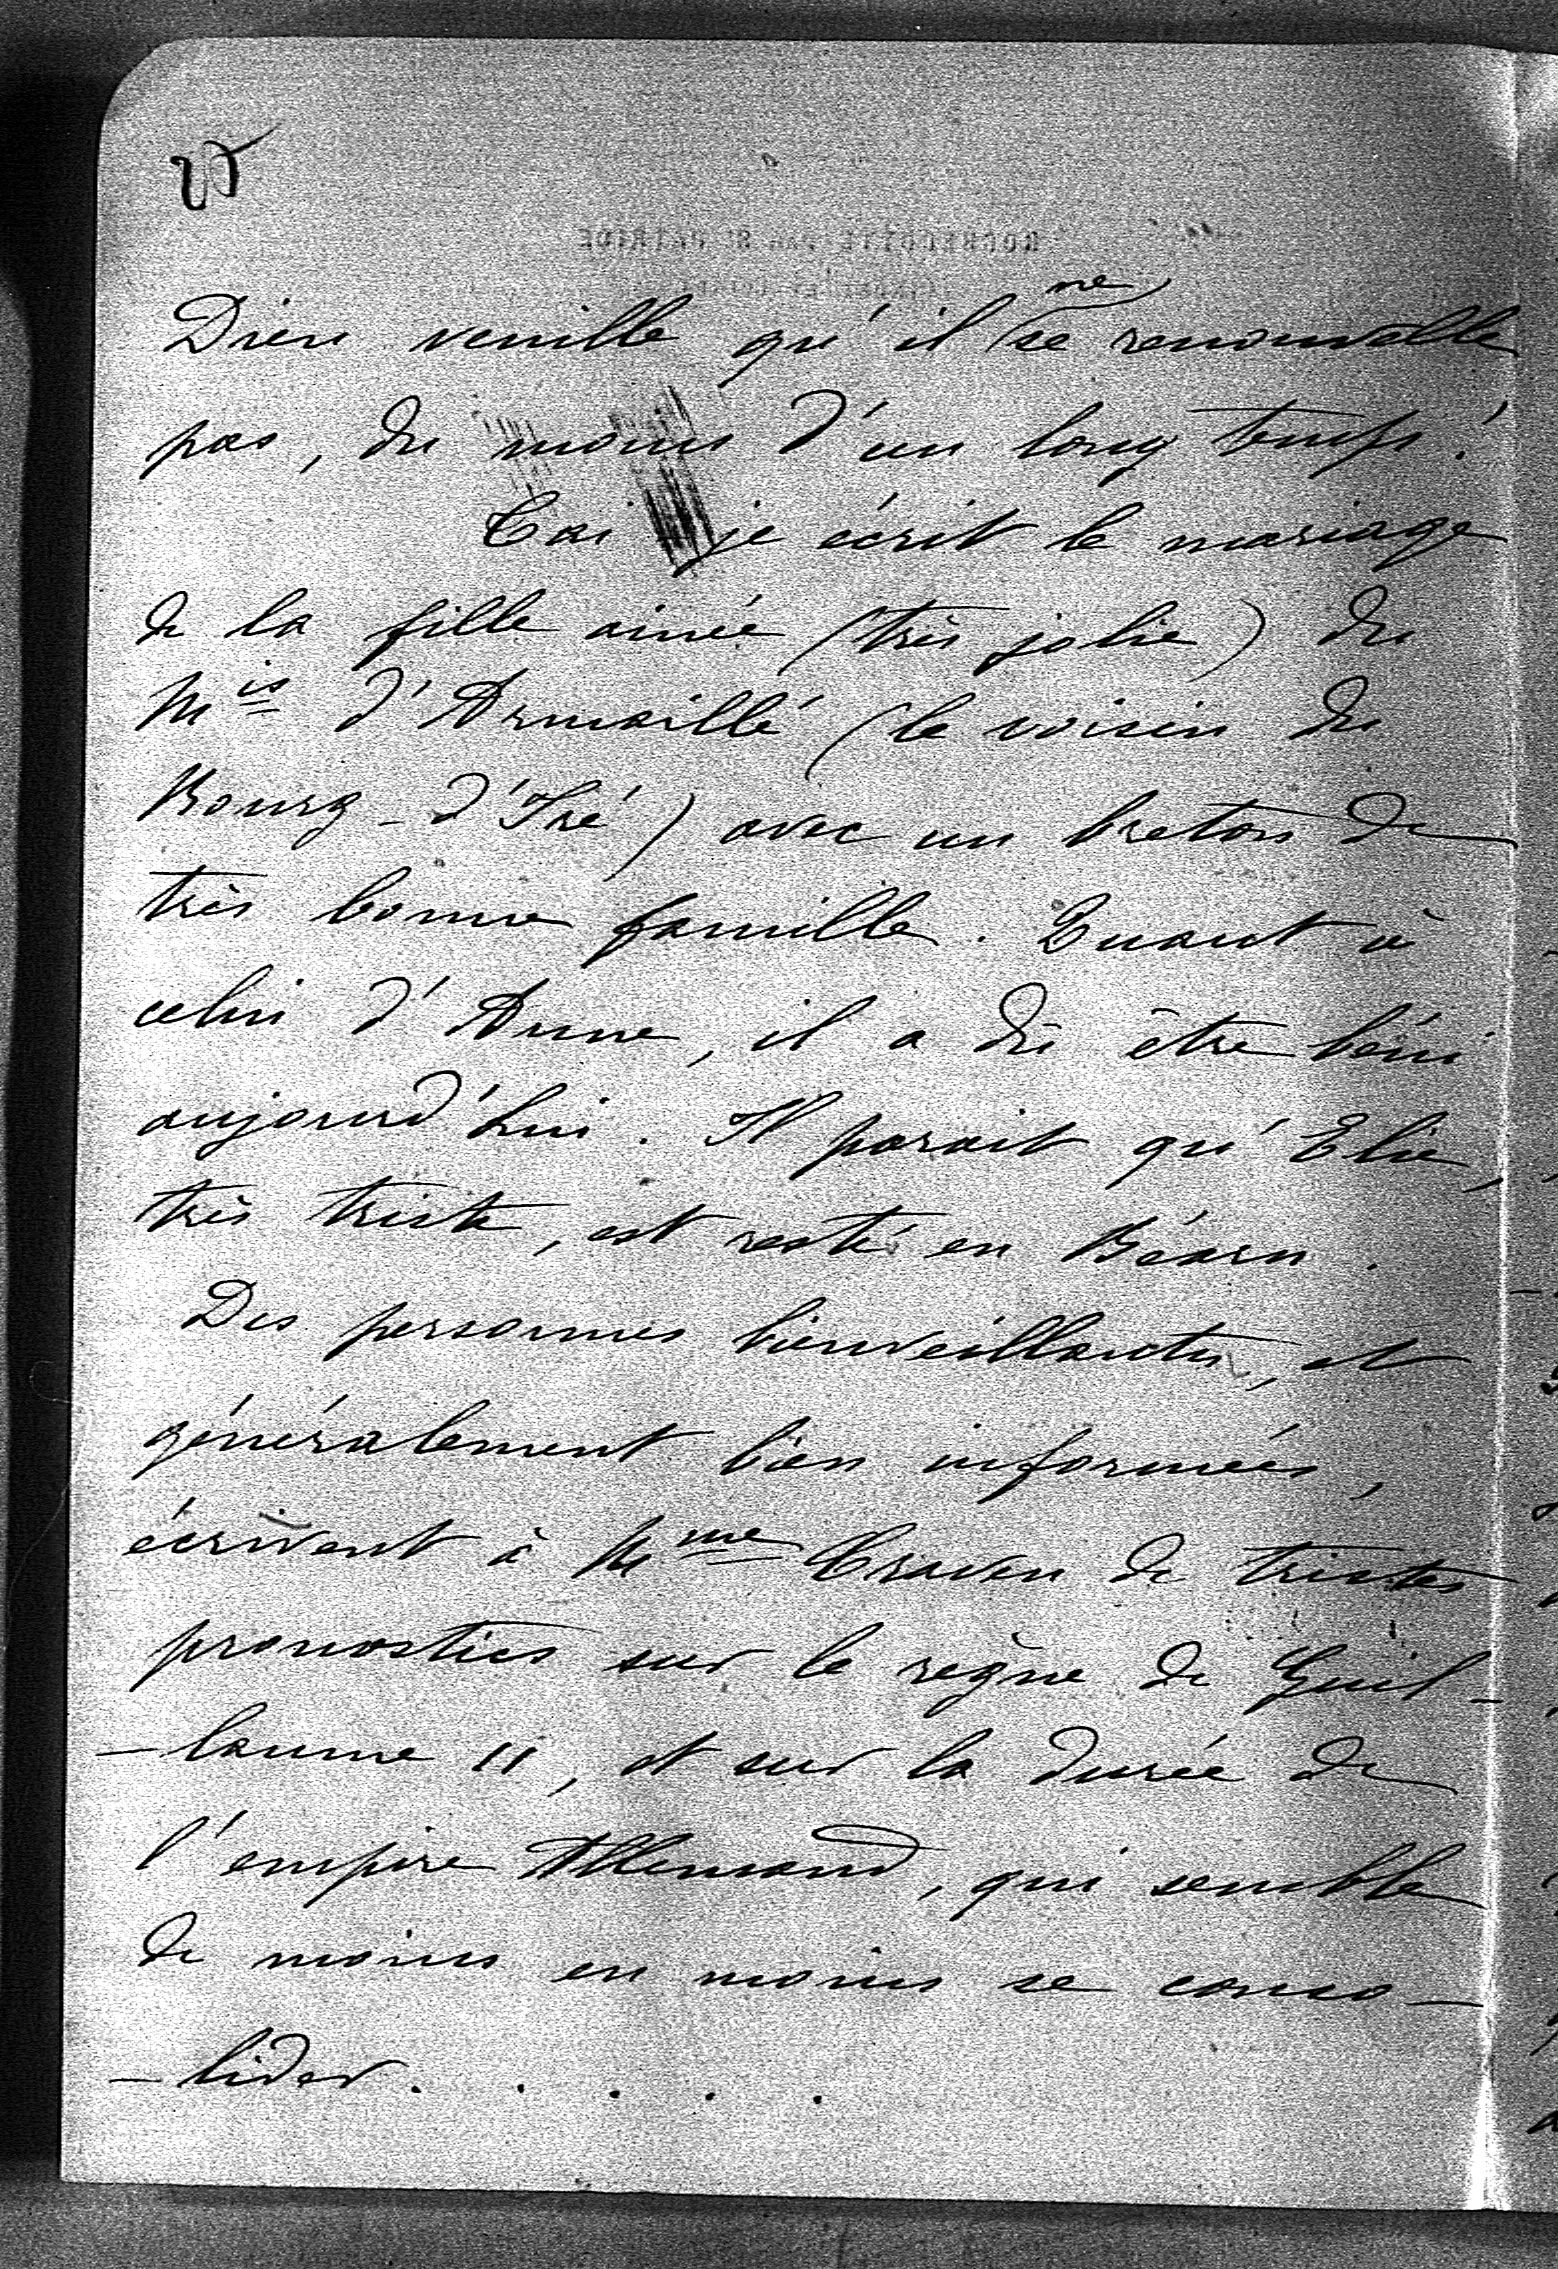 Dieu veuille qu'il ne se renouvelle
pas, du moins d'un long temps !
T'ai je écrit le mariage
de la fille ainée (très jolie) du
Mis d'Armaillé (le voisin du
Bourg-d'Iré) avec un breton de
très bonne famille. Quant à
celui d'Anne, il a dû être béni
aujourd'hui. Il parait qu'Elie,
très triste, est resté en Béarn.
Des personnes bienveillantes, et
généralement bien informées,
écrivent à Mme Craven de tristes
pronostics sur le règne de Guil-
-laume II, et sur la durée de
l'empire Allemand, qui semble
de moins en moins se conso-
-lider. . . . .